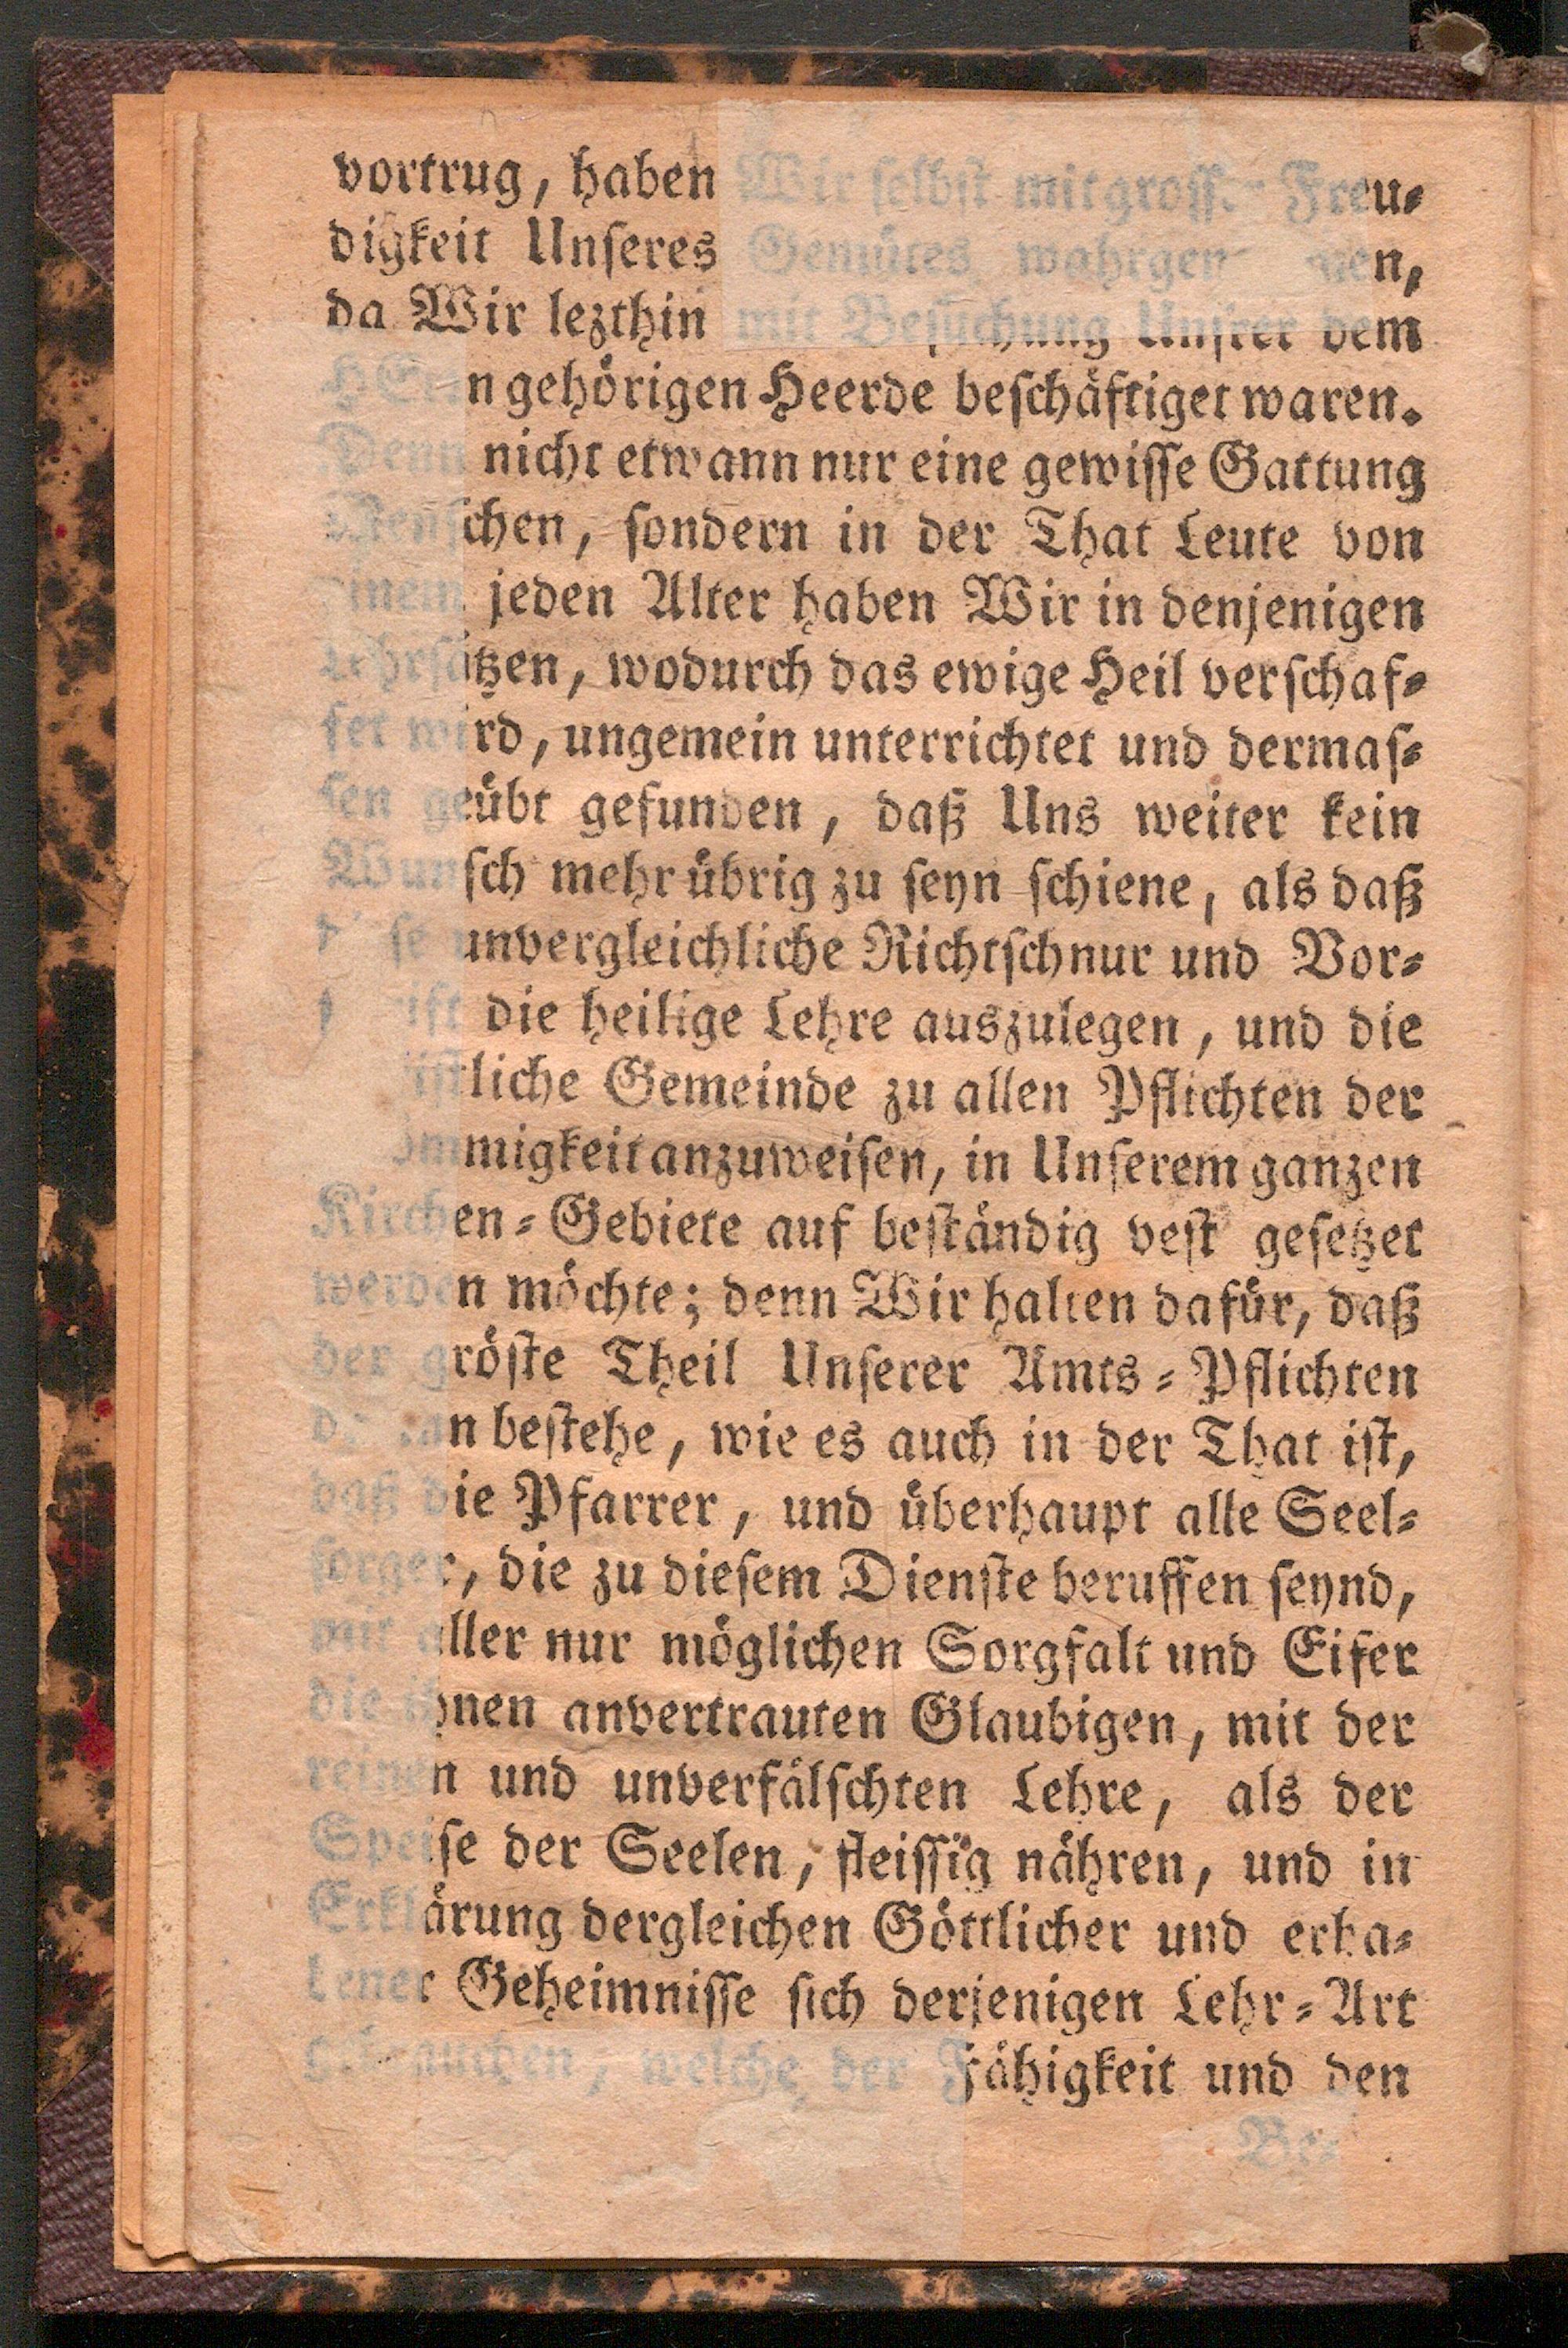 vortrug, haben Wir selbst mit grosser Freu⸗
digkeit Unseres Gemütes wahrgenommen,
da Wir lezthin mit Besuchung Unsrer dem
HErrn gehörigen Heerde beschäftiget waren.
Denn nicht etwann nur eine gewisse Gattung
Menschen, sondern in der That Leute von
einem jeden Alter haben Wir in denjenigen
Lehrsätzen, wodurch das ewige Heil verschaf⸗
fet wird, ungemein unterrichtet und dermas⸗
sen geübt gefunden, daß Uns weiter kein
Wunsch mehr übrig zu seyn schiene, als daß
diese unvergleichliche Richtschnur und Vor⸗
die heilige Lehre auszulegen, und die
Gemeinde zu allen Pflichten der
anzuweisen, in Unserem ganzen
Kirchen⸗Gebiete auf beständig vest gesetzet
werden möchte; denn Wir halten dafür, daß
der gröste Theil Unserer Amts⸗Pflichten
bestehe, wie es auch in der That ist,
daß die Pfarrer, und überhaupt alle Seel⸗
sorger, die zu diesem Dienste beruffen seynd,
mit aller nur möglichen Sorgfalt und Eifer
die ihnen anvertrauten Glaubigen, mit der
reinen und unverfälschten Lehre, als der
Speise der Seelen, fleissig nähren, und in
Erklärung dergleichen Göttlicher und erha⸗
bener Geheimnisse sich derjenigen Lehr⸗Art
gebrauchen, welche der Fähigkeit und den
Be⸗